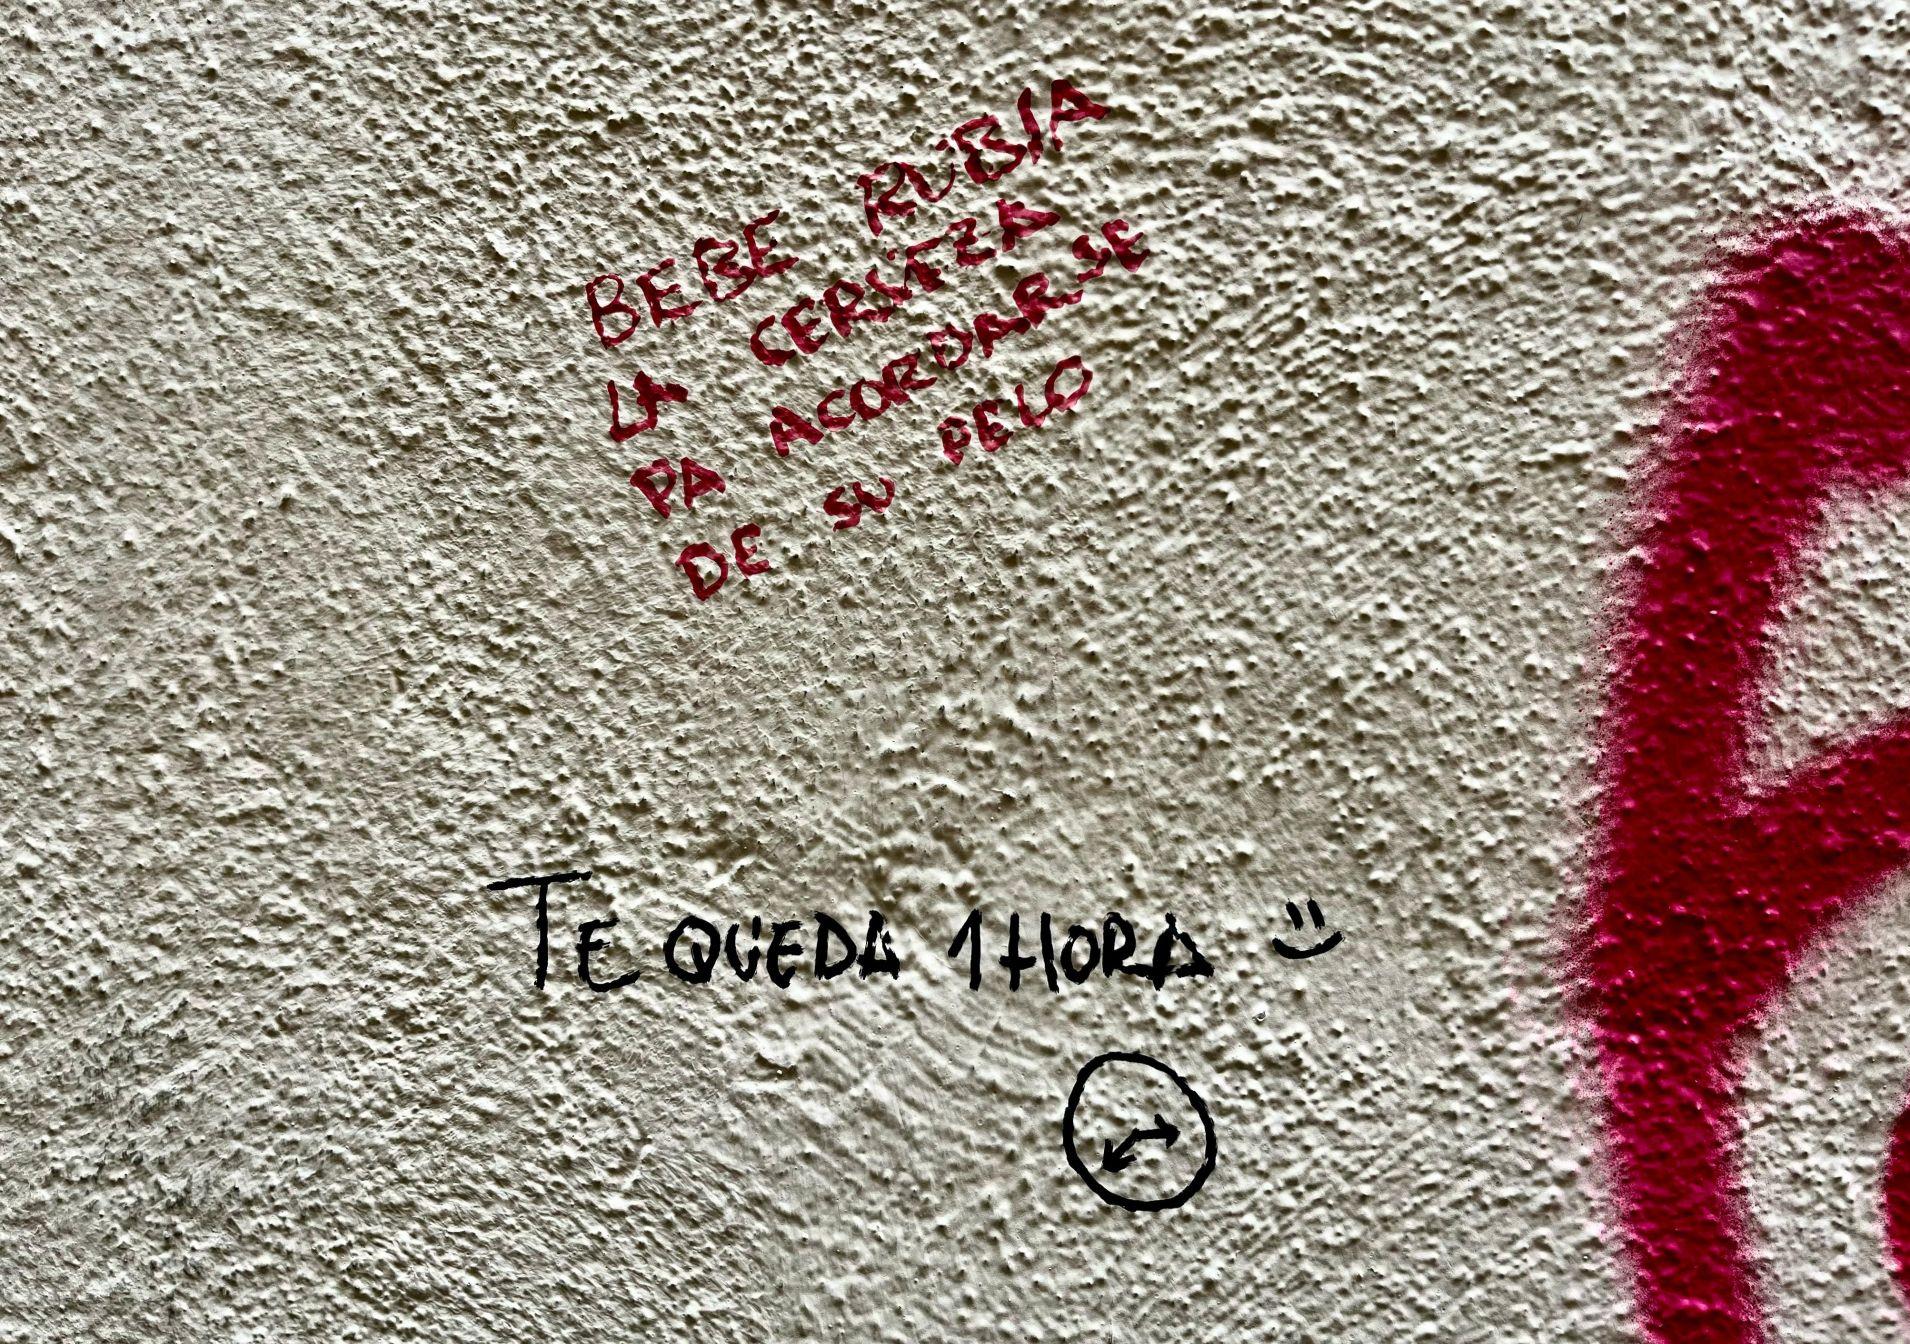 BEBE RUBIA
LA CERVEZA
PA ACORDARSE
DE SU PELO
TE QUEDA 1 HORA